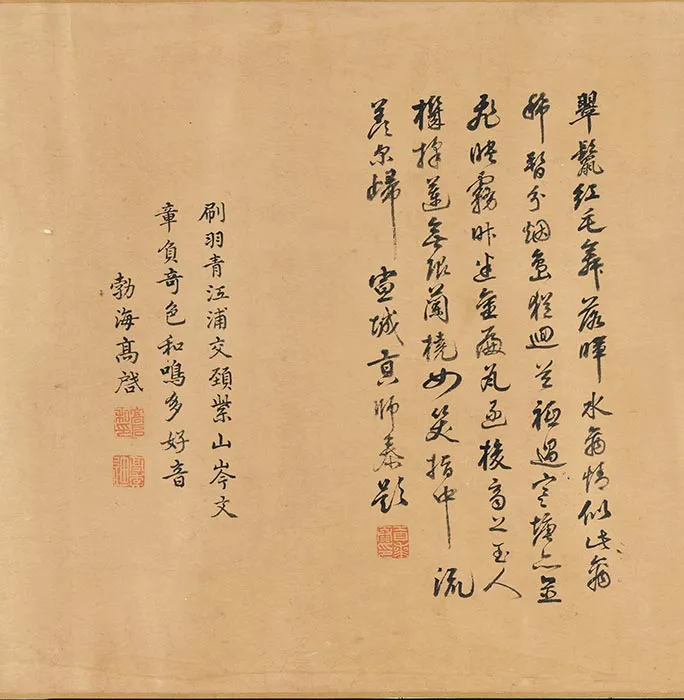 翠鬣紅毛舞落暉水禽情似此禽
稀暫分烟島猶迴首秪過寒塘亦並
飛映霧昨迷金殿瓦逐梭齊上玉人
機採蓮無限蘭橈女笑指中流
羨尔歸 宣城貢師泰題
刷羽青江浦交頸紫山岑文
章負奇色和鳴多好音
勃海髙啓